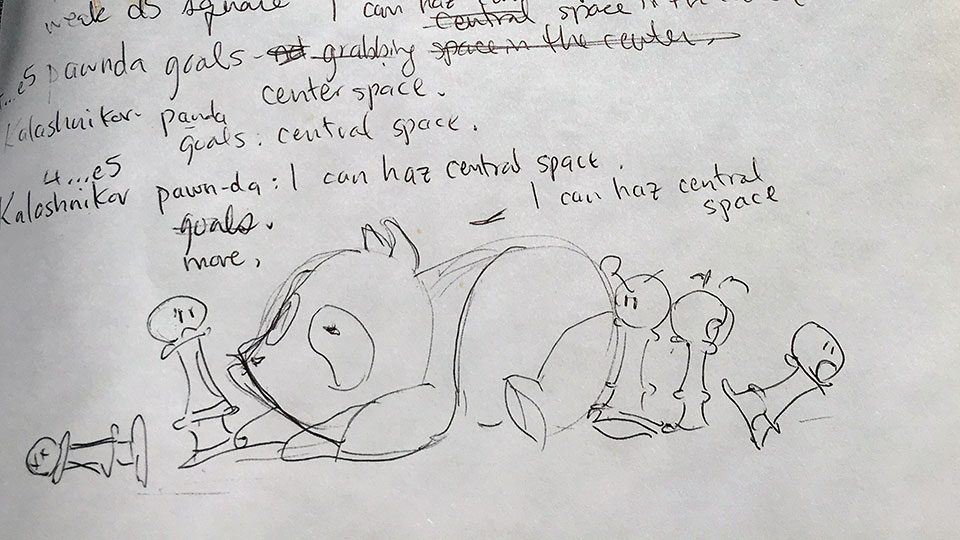 weak d5 square I can haz central space in the
...e5 pawnda goals - not grabbing space in the center.
center space.
Kalashnikov panda
goals: central space.
4...e5
Kalashnikov pawn-da: I can haz central space.
goals.
I can haz central
space